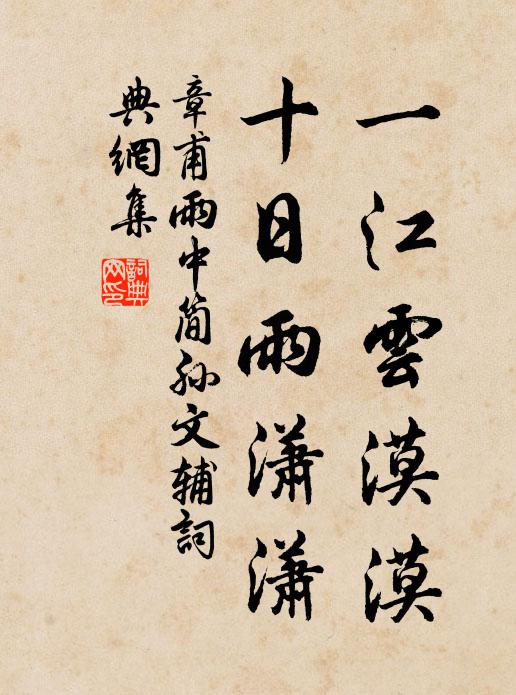 一江雲漠漠
十日雨瀟瀟
章甫雨中简孙文辅詞
典網集
詞典
网印